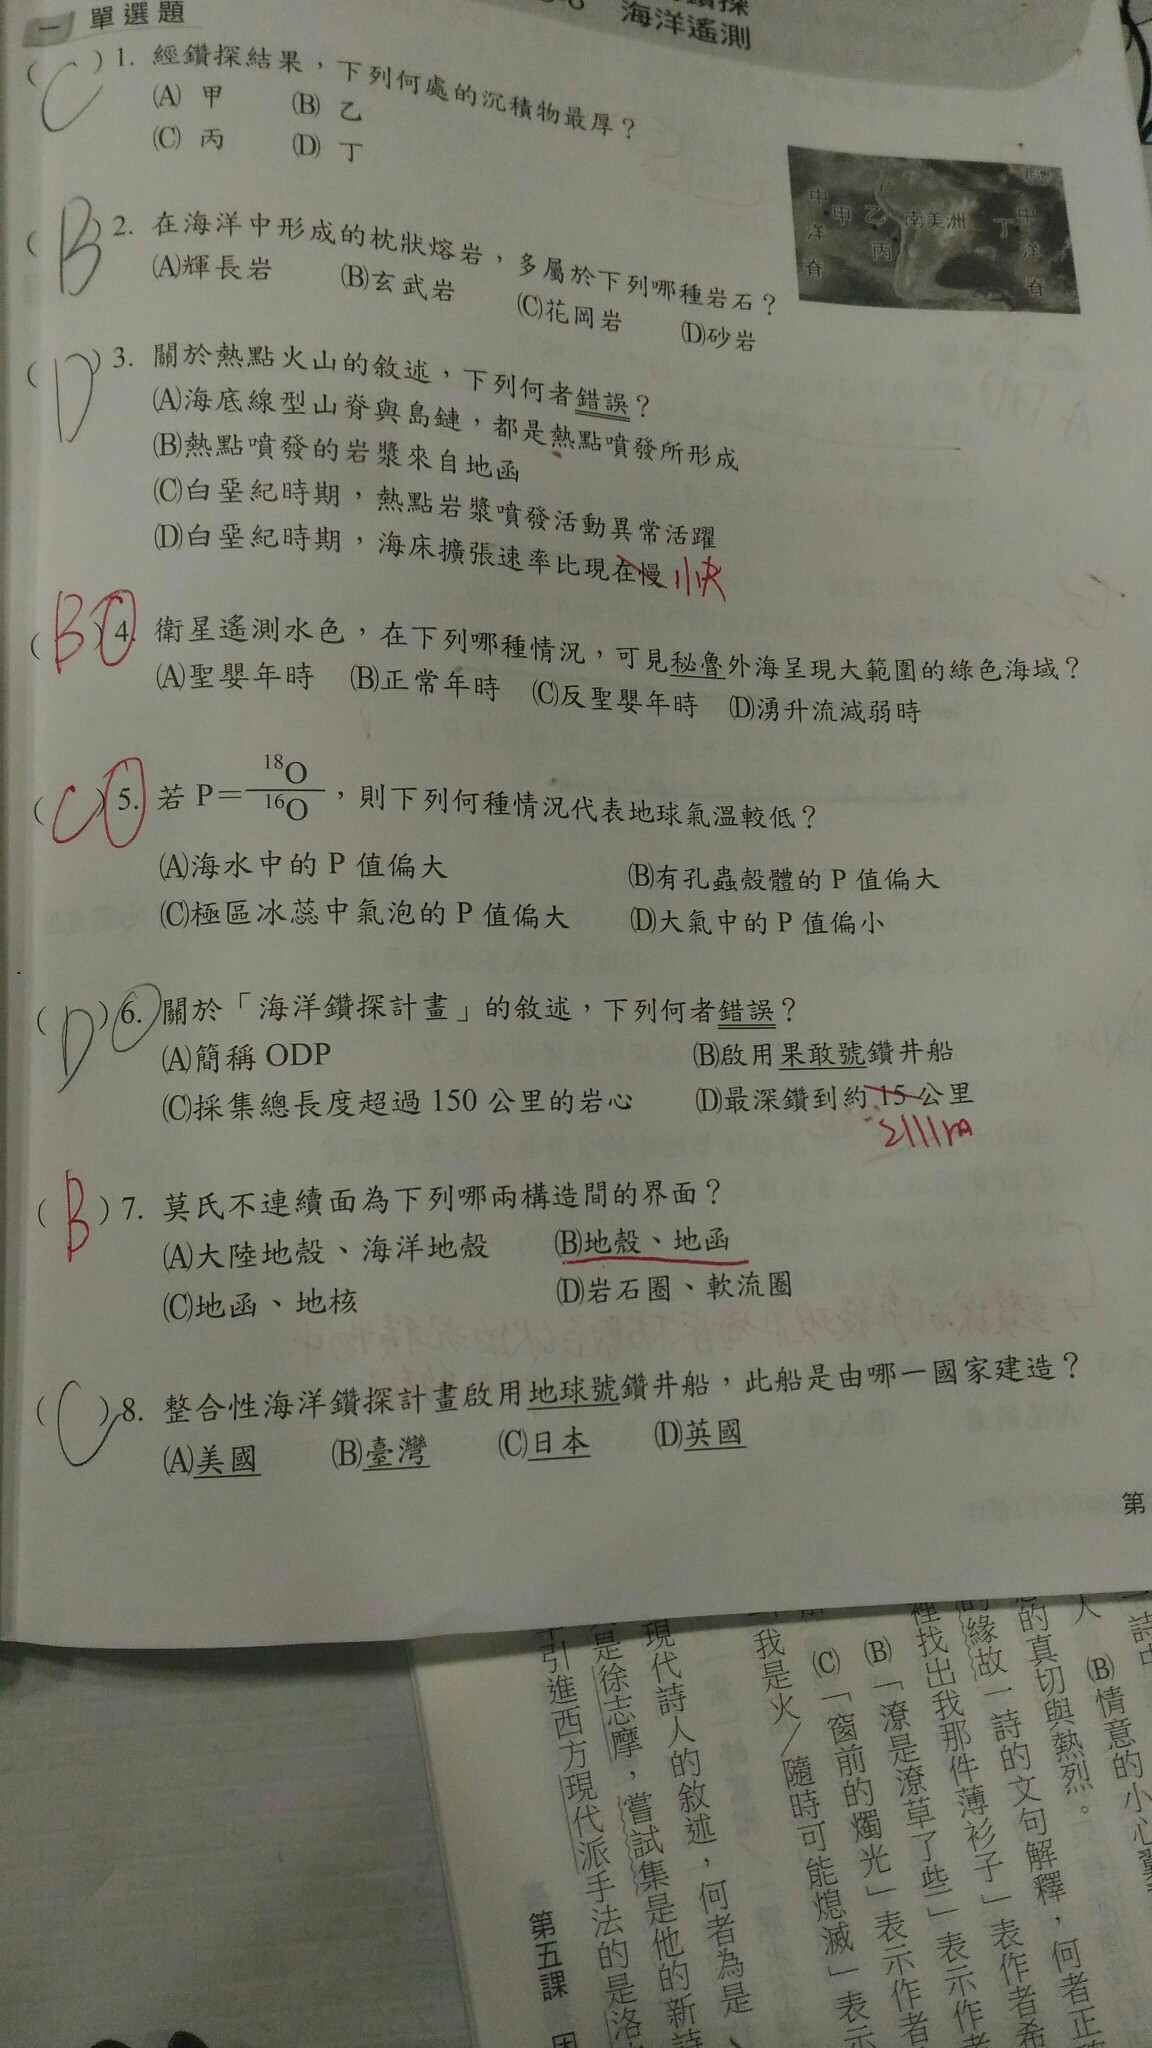 一 單選題
海洋遙測
( C ) 1. 經鑽探結果，下列何處的沉積物最厚？
(A) 甲 (B) 乙
(C) 丙 (D) 丁
中洋脊 甲 乙 丙 南美洲 丁 中洋脊
( B ) 2. 在海洋中形成的枕狀熔岩，多屬於下列哪種岩石？
(A)輝長岩 (B)玄武岩 (C)花岡岩 (D)砂岩
( D ) 3. 關於熱點火山的敘述，下列何者錯誤？
(A)海底線型山脊與島鏈，都是熱點噴發所形成
(B)熱點噴發的岩漿來自地函
(C)白堊紀時期，熱點岩漿噴發活動異常活躍
(D)白堊紀時期，海床擴張速率比現在慢 快
( B ) 4. 衛星遙測水色，在下列哪種情況，可見秘魯外海呈現大範圍的綠色海域？
(A)聖嬰年時 (B)正常年時 (C)反聖嬰年時 (D)湧升流減弱時
( C ) 5. 若 P＝18O/16O，則下列何種情況代表地球氣溫較低？
(A)海水中的 P 值偏大 (B)有孔蟲殼體的 P 值偏大
(C)極區冰蕊中氣泡的 P 值偏大 (D)大氣中的 P 值偏小
( D ) 6. 關於「海洋鑽探計畫」的敘述，下列何者錯誤？
(A)簡稱 ODP (B)啟用果敢號鑽井船
(C)採集總長度超過 150 公里的岩心 (D)最深鑽到約 15 公里
2111m
( B ) 7. 莫氏不連續面為下列哪兩構造間的界面？
(A)大陸地殼、海洋地殼 (B)地殼、地函
(C)地函、地核 (D)岩石圈、軟流圈
( C ) 8. 整合性海洋鑽探計畫啟用地球號鑽井船，此船是由哪一國家建造？
(A)美國 (B)臺灣 (C)日本 (D)英國
第
(B)情意的小心翼
的真切與熱烈。
的緣故一詩的文句解釋，何者正確
裡找出我那件薄衫子」表作者希
(B)「潦是潦草了些」表示作者
(C)「窗前的燭光」表示作者
我是火／隨時可能熄滅」表示
現代詩人的敘述，何者為是
是徐志摩，嘗試集是他的新詩
引進西方現代派手法的是洛
第五課